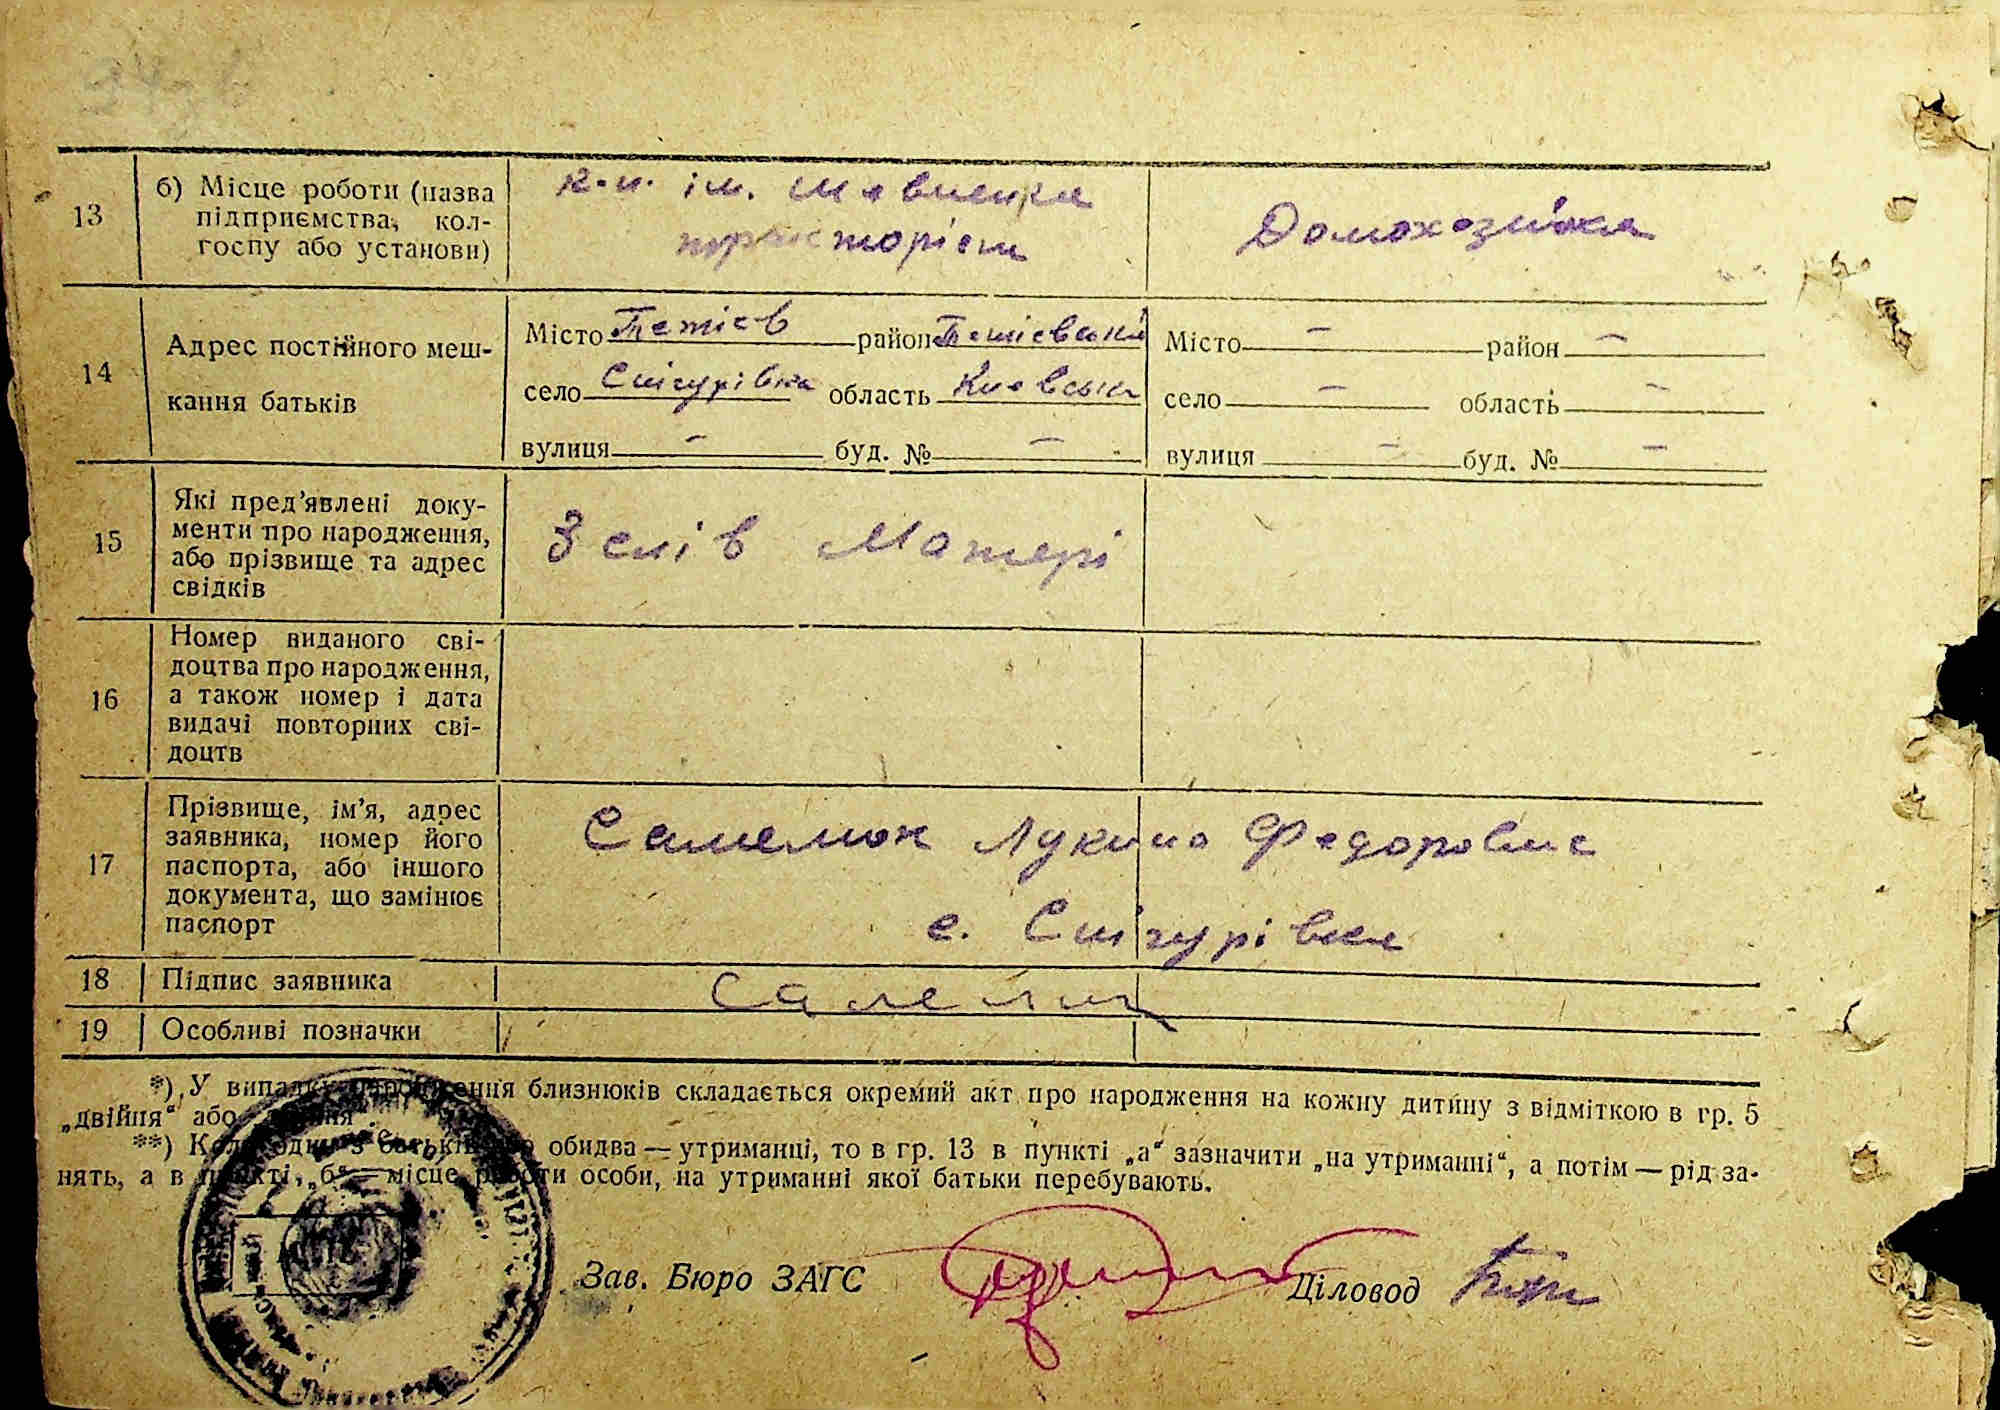 13
б) Місце роботи (назва
підприємства, кол-
госпу або установи)
к-п. ім. Шевченка
тракторист
Домохозяйка
14
Адрес постійного меш-
кання батьків
Місто Тетієв район Тетієвський
село Снігурівка область Київська
вулиця — буд. № —
Місто — район —
село — область —
вулиця — буд. № —
15
Які пред’явлені доку-
менти про народження,
або прізвище та адрес
свідків
З слів Матері
16
Номер виданого сві-
доцтва про народження,
а також номер і дата
видачі повторних сві-
доцтв
17
Прізвище, ім’я, адрес
заявника, номер його
паспорта, або іншого
документа, що замінює
паспорт
Федоровна
с. Снігурівка
18 Підпис заявника
19 Особливі позначки
*) У випадку народження близнюків складається окремий акт про народження на кожну дитину з відміткою в гр. 5
„двійня“ або
**) Коли один з батьків або обидва — утриманці, то в гр. 13 в пункті „а“ зазначити „на утриманні“, а потім — рід за-
нять, а в пункті „б“ — місце роботи особи, на утриманні якої батьки перебувають.
Зав. Бюро ЗАГС
Діловод